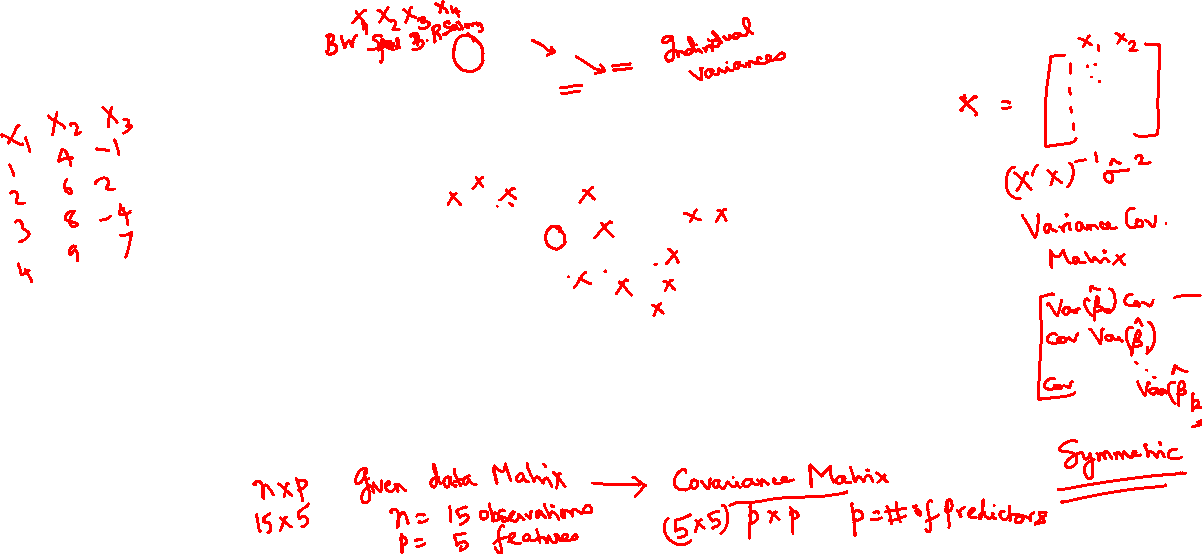 X1 X2 X3 X4
BW Speed B.R
Individual
Variances
X1 X2 X3
1 4 -1
2 6 2
3 8 -4
4 9 7
x1 x2
X =
(X'X)^-1 σ̂^2
Variance Cov.
Matrix
Var(β̂0) Cov —
Cov Var(β̂1)
Cov Var(β̂p
Symmetric
n×p given data Matrix → Covariance Matrix
15×5 n = 15 observations (5×5) p×p p = # of Predictors
p = 5 features